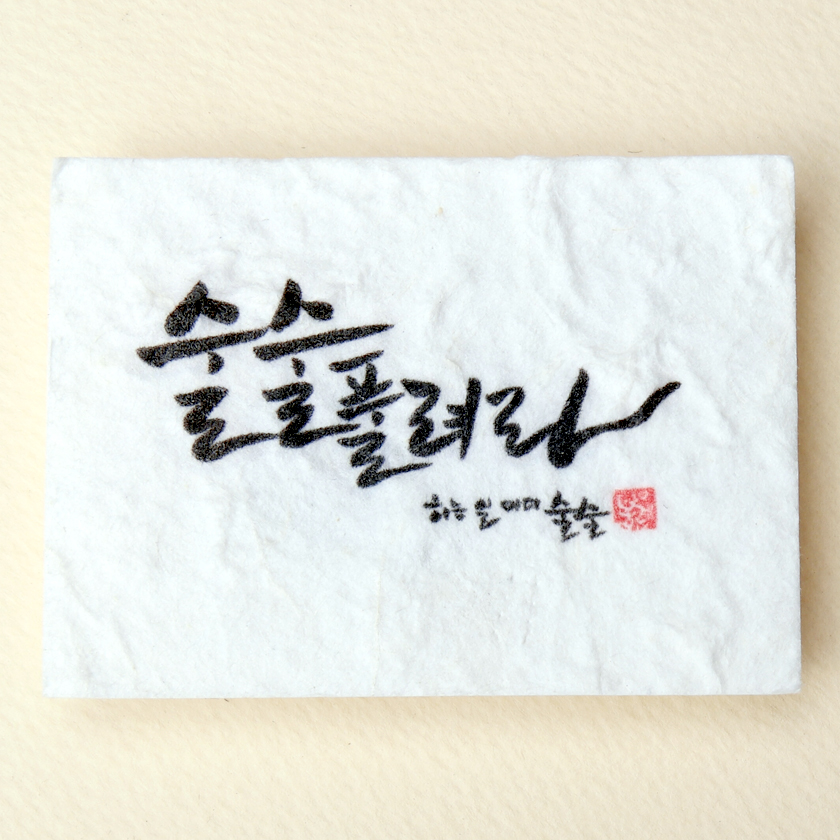 술술풀려라
하는 일마다 술술